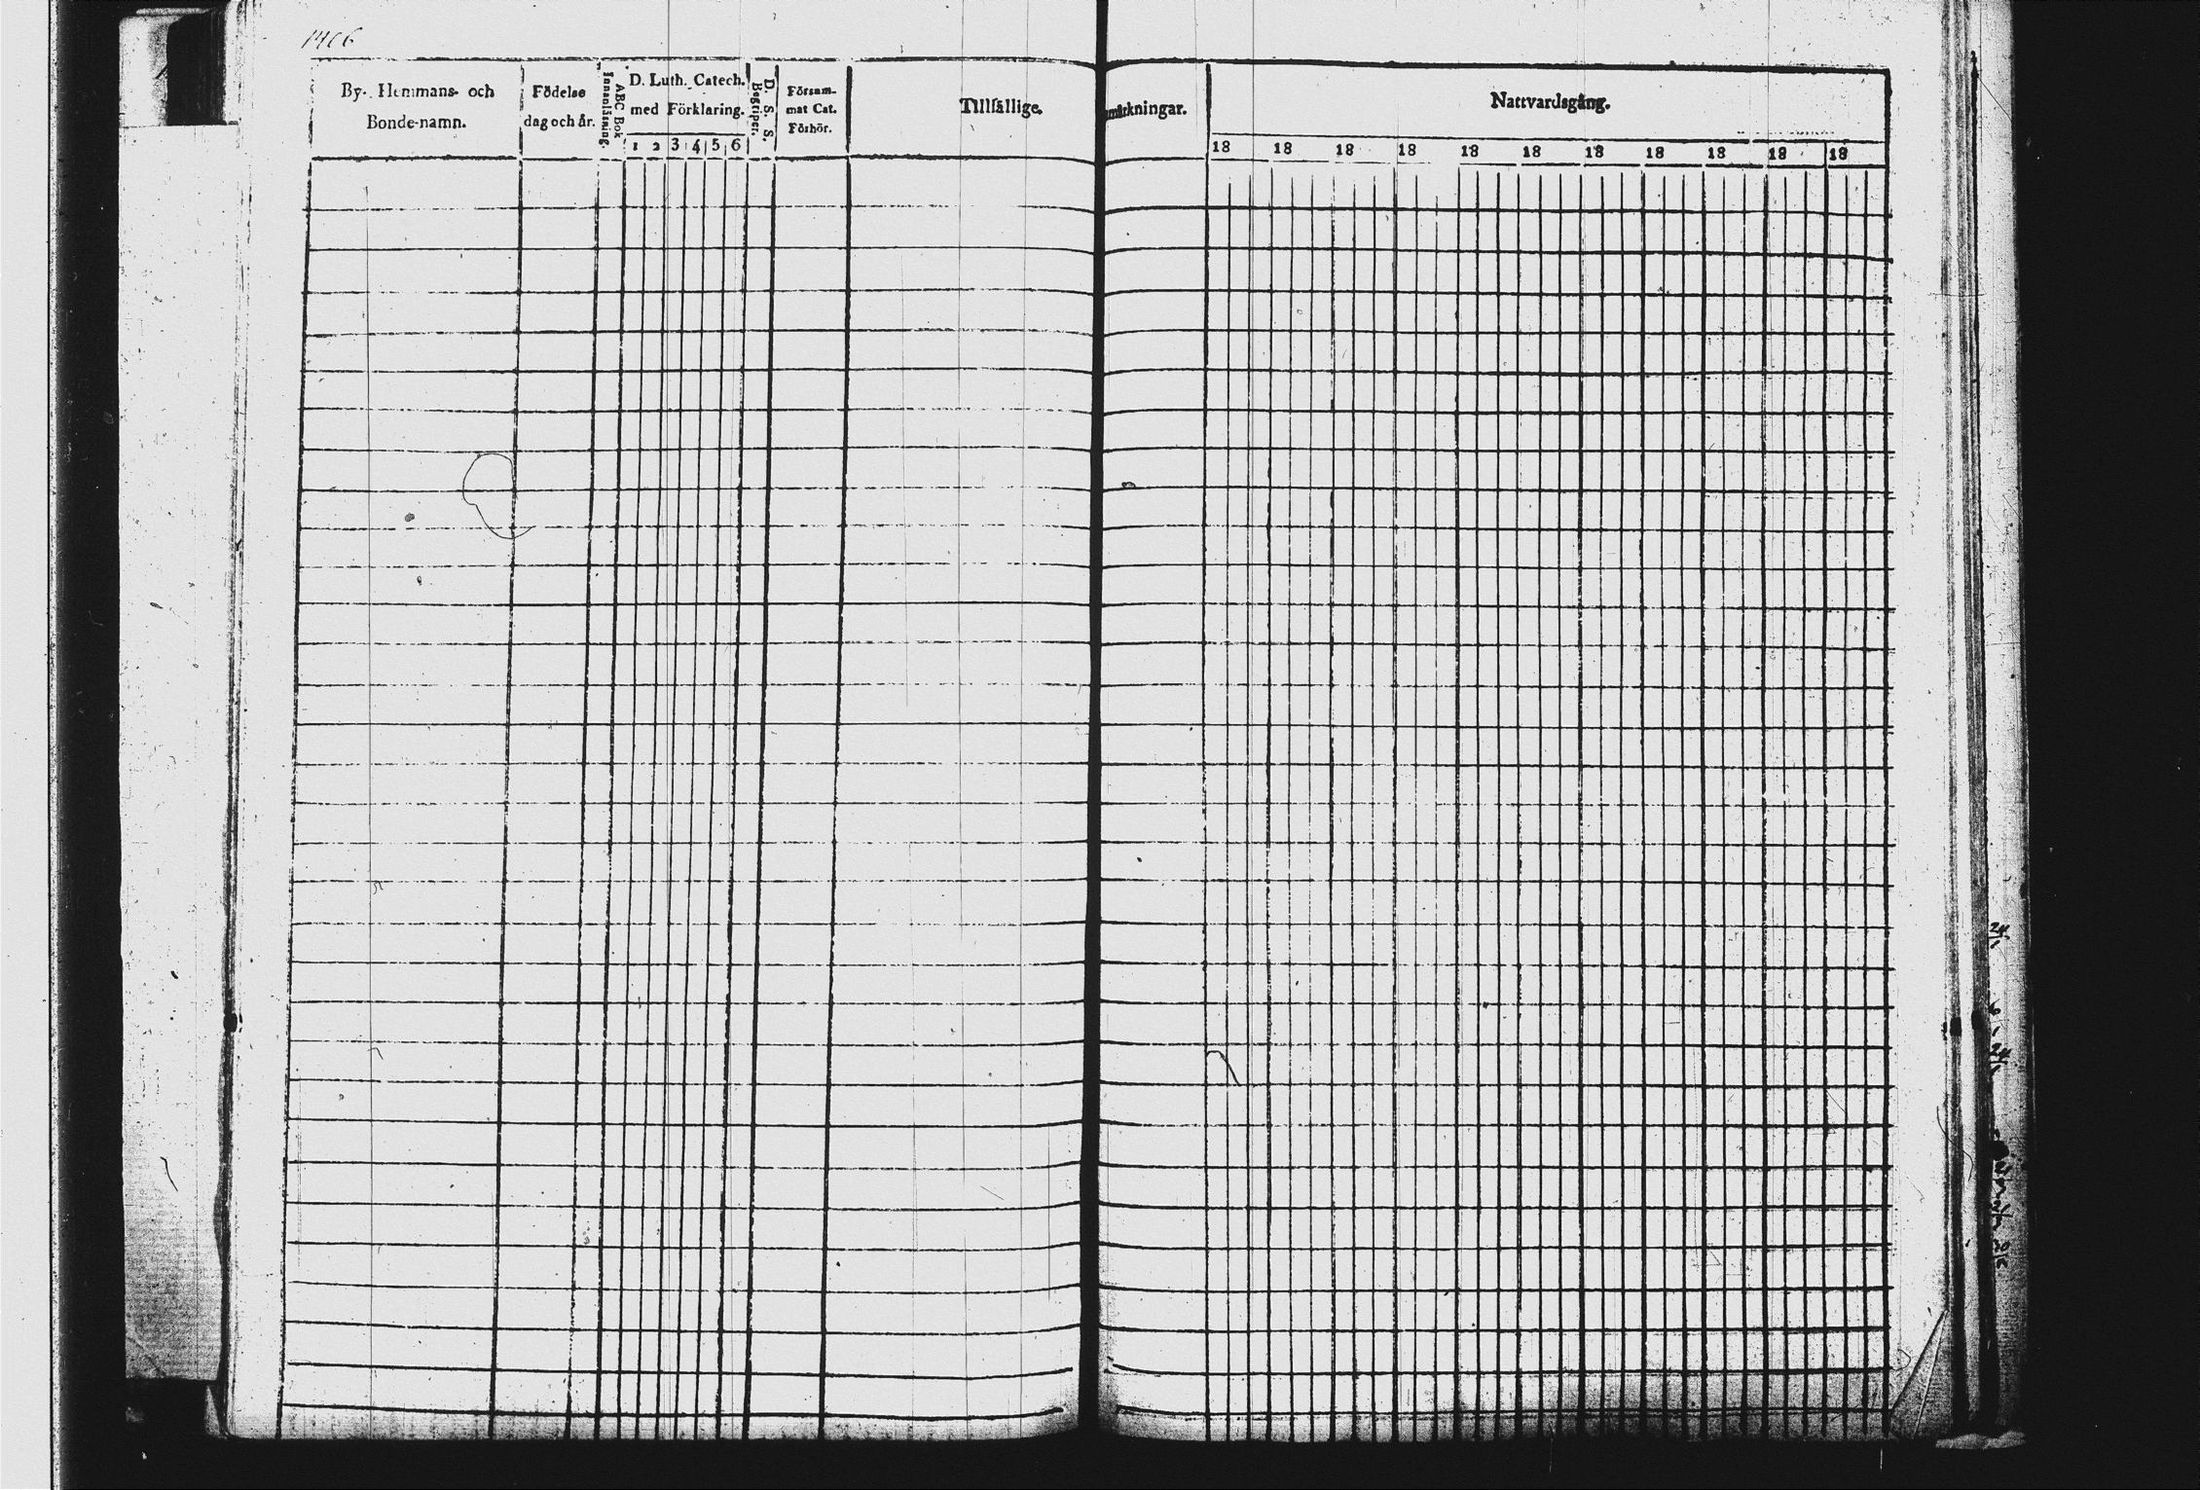 By- Hemmans- och
Bonde-namn.
Födelse
dag och år.
ABC Bok
Innanläsning.
D. Luth. Catech.
med Förklaring.
1 2 3 4 5 6
D. S. S.
Begriper.
Försam-
mat Cat.
Förhör.
Tillfällige
märkningar.
Nattvardsgång.
18 18 18 18 18 18 18 18 18 18 18